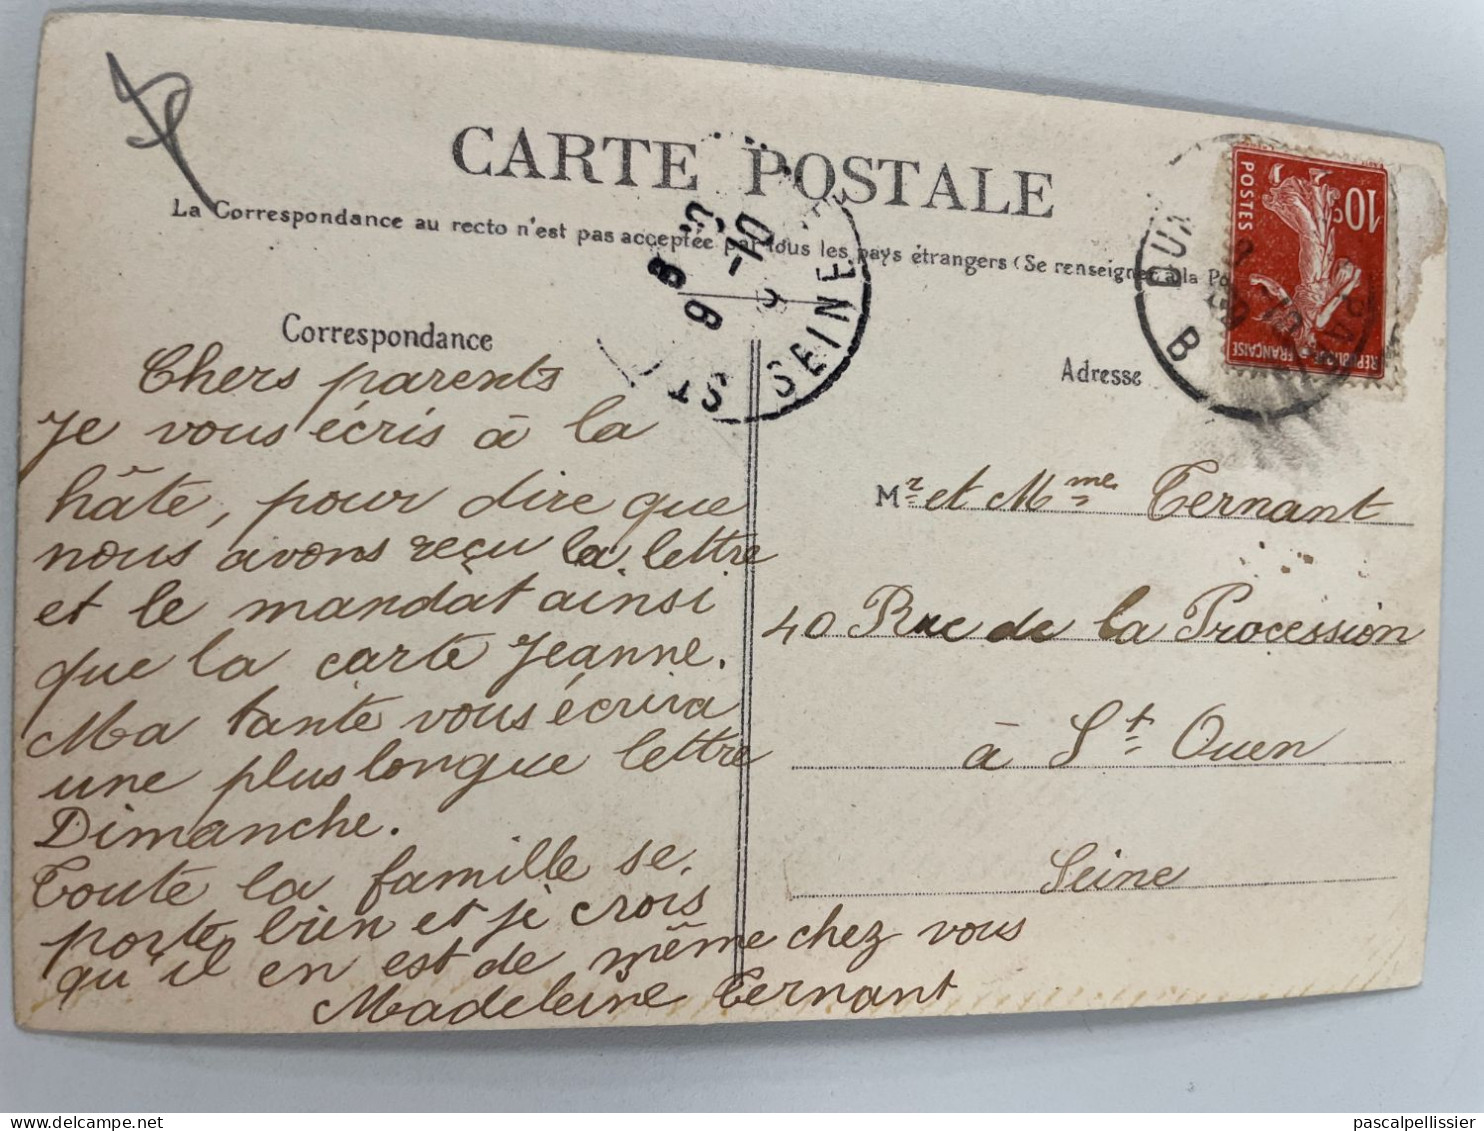 CARTE POSTALE
La Correspondance au recto n'est pas acceptée par tous les pays étrangers (Se renseigner à la Po
Correspondance
Chers parents
Je vous écris à la
hâte, pour dire que
nous avons reçu la lettre
et le mandat ainsi
que la carte Jeanne.
Ma tante vous écrira
une plus longue lettre
Dimanche.
Toute la famille se
porte bien et je crois
qu'il en est de même chez vous
Madeleine Ternant
Adresse
Mr et Mme Ternant
40 Rue de la Procession
à St Ouen
Seine
10c
POSTES
REPUBLIQUE FRANÇAISE
ST
SEINE
9 -10
B
pascalpellissier